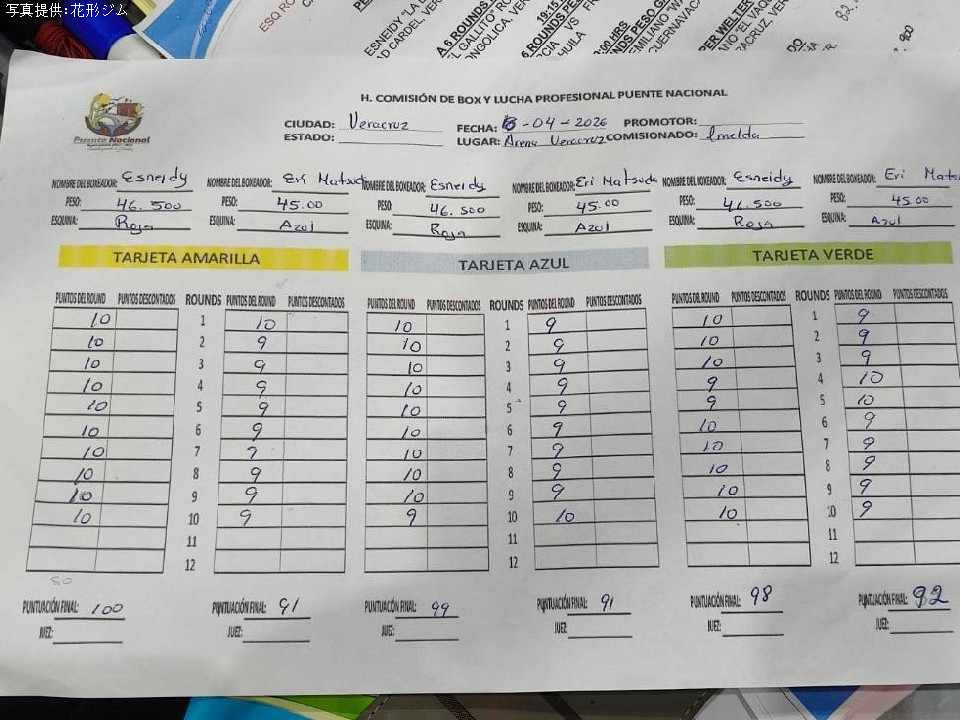 写真提供:花形ジム
ESQ RO
A6 ROUNDS
Puente Nacional
H. COMISIÓN DE BOX Y LUCHA PROFESIONAL PUENTE NACIONAL
CIUDAD: Veracruz FECHA: 18-04-2026 PROMOTOR:
ESTADO: LUGAR: Arena Veracruz COMISIONADO: Imelda
NOMBRE DEL BOXEADOR: Esneidy NOMBRE DEL BOXEADOR: Eri Matsuda NOMBRE DEL BOXEADOR: Esneidy NOMBRE DEL BOXEADOR: Eri Matsuda NOMBRE DEL BOXEADOR: Esneidy NOMBRE DEL BOXEADOR: Eri Mats
PESO: 46.500 PESO: 45.00 PESO: 46.500 PESO: 45.00 PESO: 46.500 PESO: 45.00
ESQUINA: Roja ESQUINA: Azul ESQUINA: Roja ESQUINA: Azul ESQUINA: Roja ESQUINA: Azul
TARJETA AMARILLA TARJETA AZUL TARJETA VERDE
PUNTOS DEL ROUND PUNTOS DESCONTADOS ROUNDS PUNTOS DEL ROUND PUNTOS DESCONTADOS PUNTOS DEL ROUND PUNTOS DESCONTADOS ROUNDS PUNTOS DEL ROUND PUNTOS DESCONTADOS PUNTOS DEL ROUND PUNTOS DESCONTADOS ROUNDS PUNTOS DEL ROUND PUNTOS DESCONTADOS
10 1 10 10 1 9 10 1 9
10 2 9 10 2 9 10 2 9
10 3 9 10 3 9 10 3 9
10 4 9 10 4 9 9 4 10
10 5 9 10 5 9 9 5 10
10 6 9 10 6 9 10 6 9
10 7 9 10 7 9 10 7 9
10 8 9 10 8 9 10 8 9
10 9 9 10 9 9 10 9 9
10 10 9 9 10 10 10 10 9
11 11 11
12 12 12
PUNTUACIÓN FINAL: 100 PUNTUACIÓN FINAL: 91 PUNTUACIÓN FINAL: 99 PUNTUACIÓN FINAL: 91 PUNTUACIÓN FINAL: 98 PUNTUACIÓN FINAL: 92
JUEZ: JUEZ: JUEZ: JUEZ: JUEZ: JUEZ: